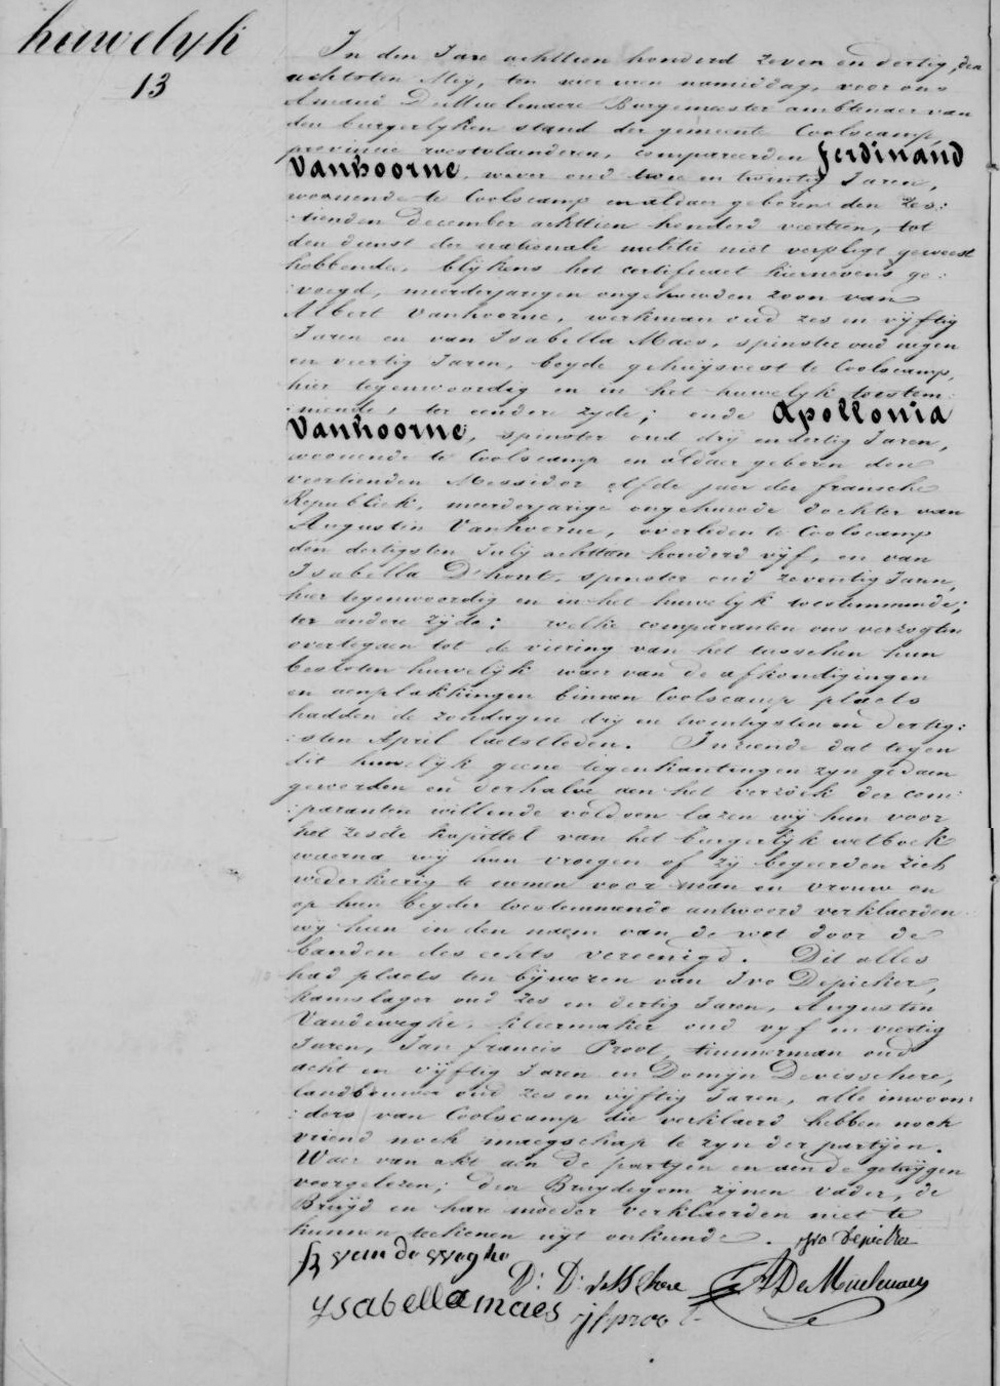 huwelyk
13
In den Jare achttien honderd zeven en dertig, den
achtsten Meij, ten vier uren namiddag, voor ons
Amand DeMeulenaere Burgemeester ambtenaer van
den burgerlyken stand der gemeente Coolscamp,
provincie westvlaenderen, compareerden ferdinand
Vanhoorne, wever oud twee en twintig Jaren,
woonende te Coolscamp en aldaer geboren den zes:
:tienden December achttien honderd veertien, tot
den dienst der nationale militie niet verpligt geweest
hebbende, blijkens het certificaet hiernevens ge:
:voegd, meerderjarigen ongehuwden zoon van
Albert Vanhoorne, werkman oud zes en vijftig
Jaren en van Isabella Maes, spinster oud negen
en veertig Jaren, beyde gehuijsvest te Coolscamp,
hier tegenwoordig en in het huwelyk toestem:
:mende, ter eendere zyde; ende Apollonia
Vanhoorne, spinster oud drij en dertig Jaren,
woonende te Coolscamp en aldaer geboren den
veertienden Messidor elfde jaer der fransche
Republiek, meerderjarige ongehuwde dochter van
Augustin Vanhoorne, overleden te Coolscamp
den dertigsten Julij achttien honderd vijf, en van
Isabella D'hont, spinster oud zeventig Jaren,
hier tegenwoordig en in het huwelyk toestemmende;
ter andere zyde: welke comparanten ons verzogten
overtegaen tot de viering van het tusschen hun
besloten huwelijk waer van de afkondigingen
en aenplakkingen binnen Coolscamp plaets
hadden de zondagen drij en twintigsten en dertig:
:sten April laetstleden. Inziende dat tegen
dit huwelijk geene tegenkantingen zyn gedaen
geworden en derhalve aen het verzoek der com:
:paranten willende voldoen lazen wij hun voor
het zesde kapittel van het burgerlijk wetboek
waerna wij hun vroegen of zij begeerden zich
wederkeerig te nemen voor man en vrouw en
op hun beyder toestemmende antwoord verklaerden
wij hun in den naem van de wet door de
banden des echts vereenigd. Dit alles
had plaets ten bijwezen van Ivo Depicker,
hamslager oud zes en dertig Jaren, Augustin
Vandeweghe, kleermaker oud vyf en veertig
Jaren, Jan francis Proot, timmerman oud
acht en vijftig Jaren en Domijn Devisschere,
landbouwer oud zes en vijftig Jaren, alle inwoon:
:ders van Coolscamp die verklaerd hebben noch
vriend noch maegschap te zyn der partijen.
Waer van akt aen de partijen en aen de getuijgen
voorgelezen; den Bruydegom zijnen vader, de
Bruijd en hare moeder verklaerden niet te
kunnen teekenen uijt onkunde. Ivo Depicker
van de weghe
D: DeVisschere ADeMeulenaere
ysabella maes jfproot